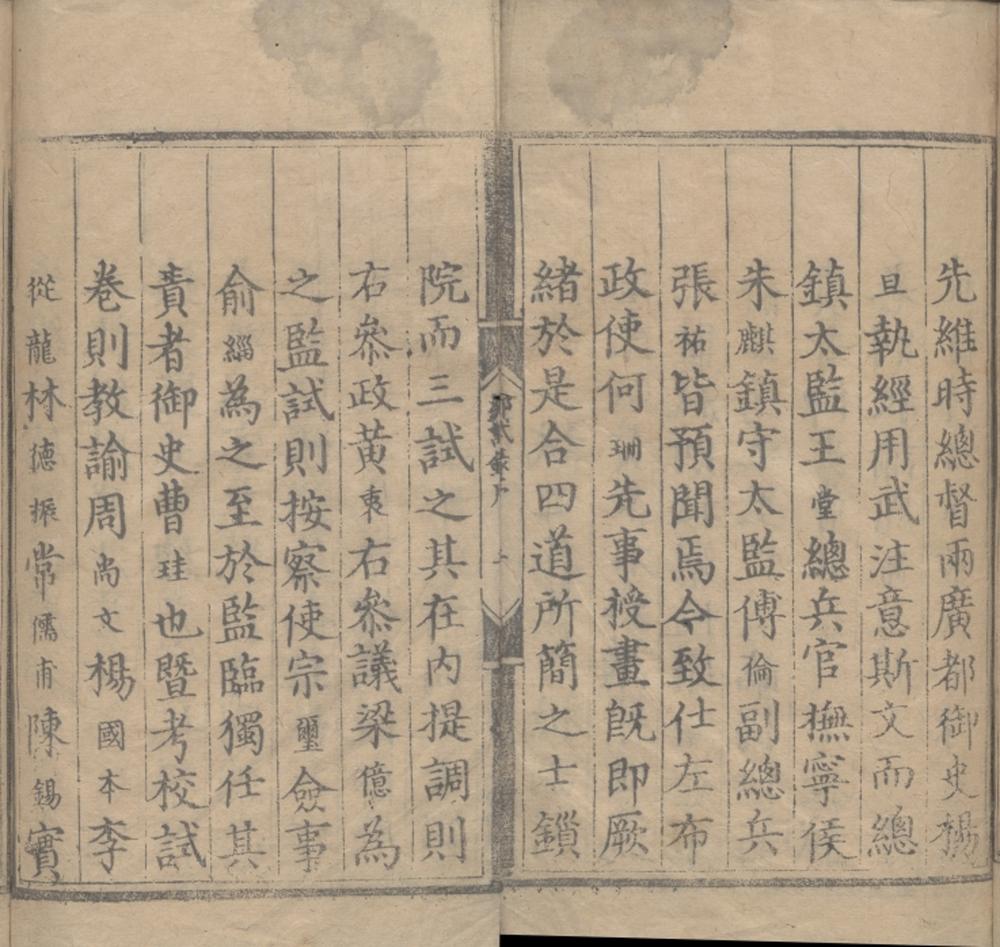 先維時總督兩廣都御史楊
旦執經用武注意斯文而總
鎮太監王堂總兵官撫寧侯
朱麒鎮守太監傅倫副總兵
張祐皆預聞焉令致仕左布
政使何珊先事授畫既即厥
緒於是合四道所簡之士鎖
鄉試錄序
院而三試之其在內提調則
右叅政黃衷右叅議梁億為
之監試則按察使宗璽僉事
俞緇為之至於監臨獨任其
責者御史曹珪也暨考校試
卷則教諭周尚文楊國本李
從龍林德振常儒甫陳錫實